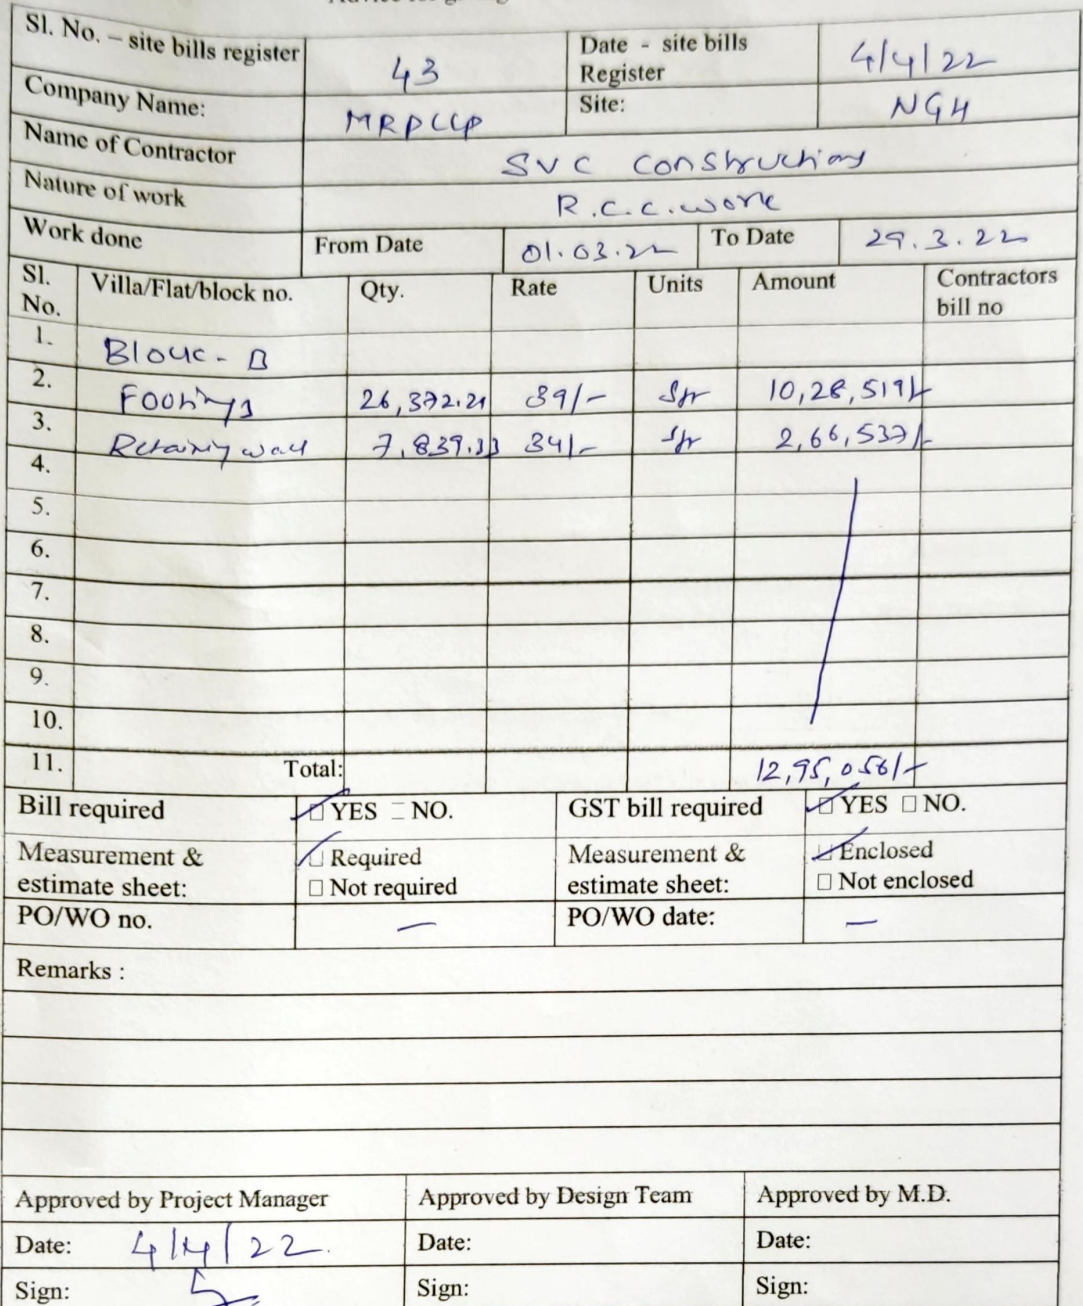 Sl. No. – site bills register 43 Date - site bills Register 4/4/22
Company Name: MRPLLP Site: NGH
Name of Contractor SVC Constructions
Nature of work R.C.C. work
Work done From Date 01.03.22 To Date 29.3.22
Sl. No. Villa/Flat/block no. Qty. Rate Units Amount Contractors bill no
1. Block - B
2. Footings 26,372.21 39/- Sft 10,28,519/-
3. Retaining wall 7,839.33 34/- Sft 2,66,537/-
4.
5.
6.
7.
8.
9.
10.
11. Total: 12,95,056/-
Bill required YES NO. GST bill required YES NO.
Measurement & estimate sheet: Required Measurement & estimate sheet: Enclosed
Not required Not enclosed
PO/WO no. — PO/WO date: —
Remarks :
Approved by Project Manager Approved by Design Team Approved by M.D.
Date: 4/4/22 Date: Date:
Sign: Sign: Sign: